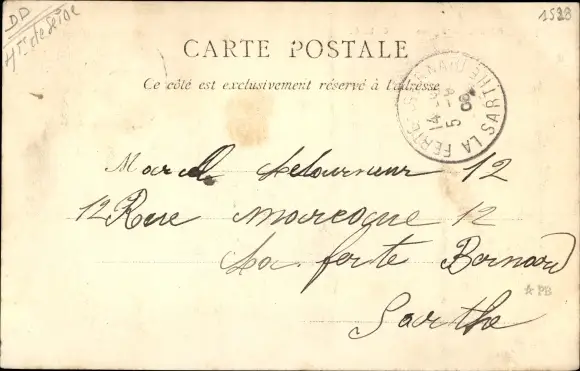 DD
Hts de Seine
1528
CARTE POSTALE
Ce côté est exclusivement réservé à l'adresse
LA FERTE-BERNARD SARTHE
14
5
Marcel Letourneur 12
12 Rue Marcogne 12
La ferte Bernard
Sarthe
☆ PB